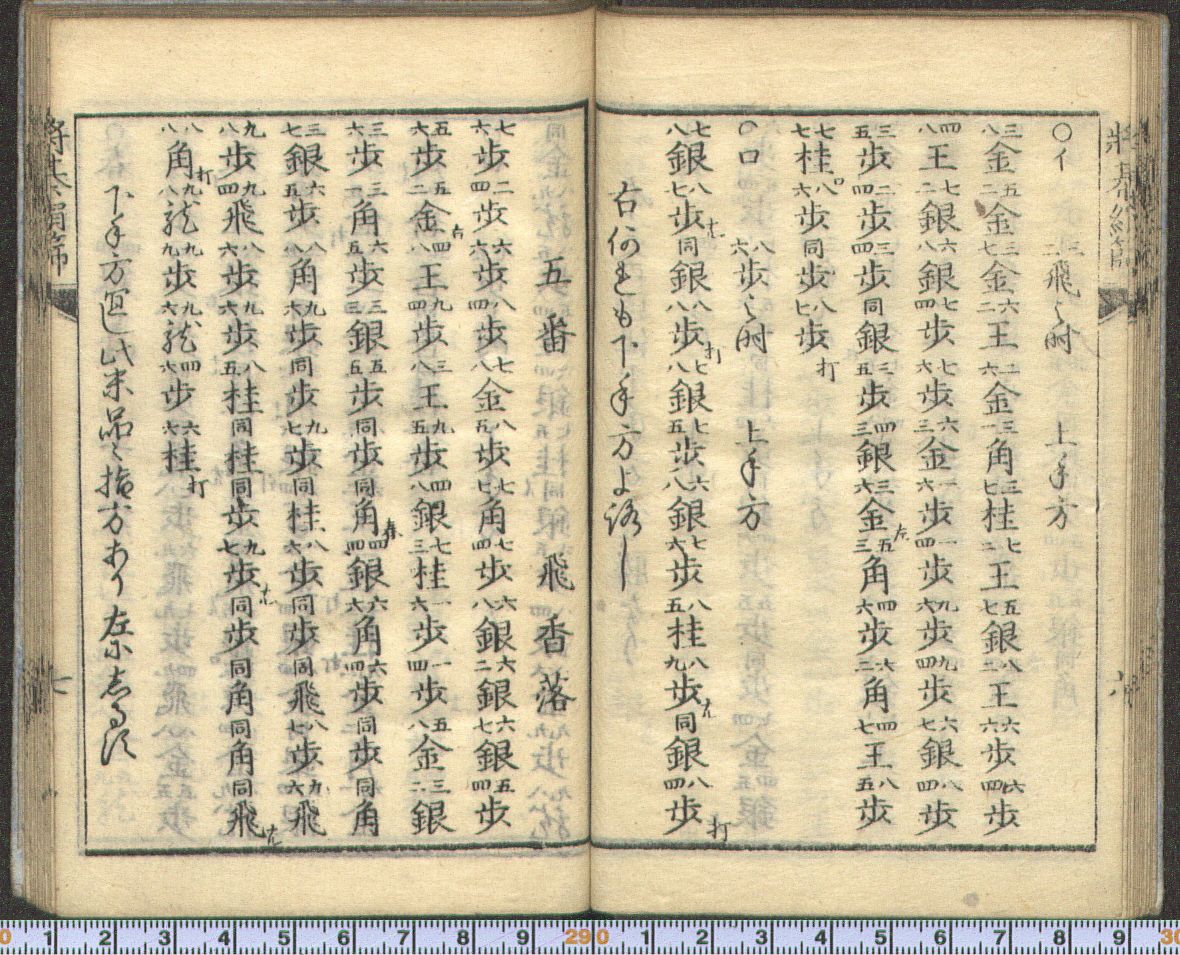 將棊絹篩　八
〇イ　三二飛之時　上手方
三八金 五二金 三七金 六二王 二六金 三一角 三七桂 七二王 五七銀 八二王 六六歩 六四歩
四八王 七二銀 六八銀 七四歩 七六歩 六三金 一六歩 一四歩 九六歩 九四歩 六七銀 八四歩
三五歩 二四歩 三四歩 同銀 三五歩 四三銀 三六金左 五三角 四六歩 六二角 四七王 八五歩
七七桂ロ 八六歩 同歩 八七歩打
〇ロ　八六歩之時　上手方
七八銀 八七歩成 同銀 八八歩打 七八銀 七五歩 六八銀 七六歩 八五桂 八九歩成 同銀 八四歩打
右何も下手方よろし
五番　飛香落
七六歩 二四歩 六六歩 八四歩 七八金 八五歩 七七角 七四歩 六八銀 六二銀 六七銀 五四歩
五六歩 五二金右 四八王 九四歩 三八王 九五歩 四八銀 七三桂 一六歩 一四歩 五八金 三二銀
三六歩 三一角 六五歩 三三銀 五五歩 同歩 同角 四四銀 六六角 六四歩 同歩 同角
三七銀 六五歩 八八角 九六歩 同歩 九七歩 同桂 八六歩 同歩 同飛 八七歩 九六飛
九八歩 九四飛 八六歩 九六歩 八五桂 同桂 同歩 九七歩成 同歩 同角 同角 同飛成
八八角打 九八龍 九九歩 九六龍 四六歩 六六桂打
下手方宜し此末品々指方あり左に
將棊絹篩　七